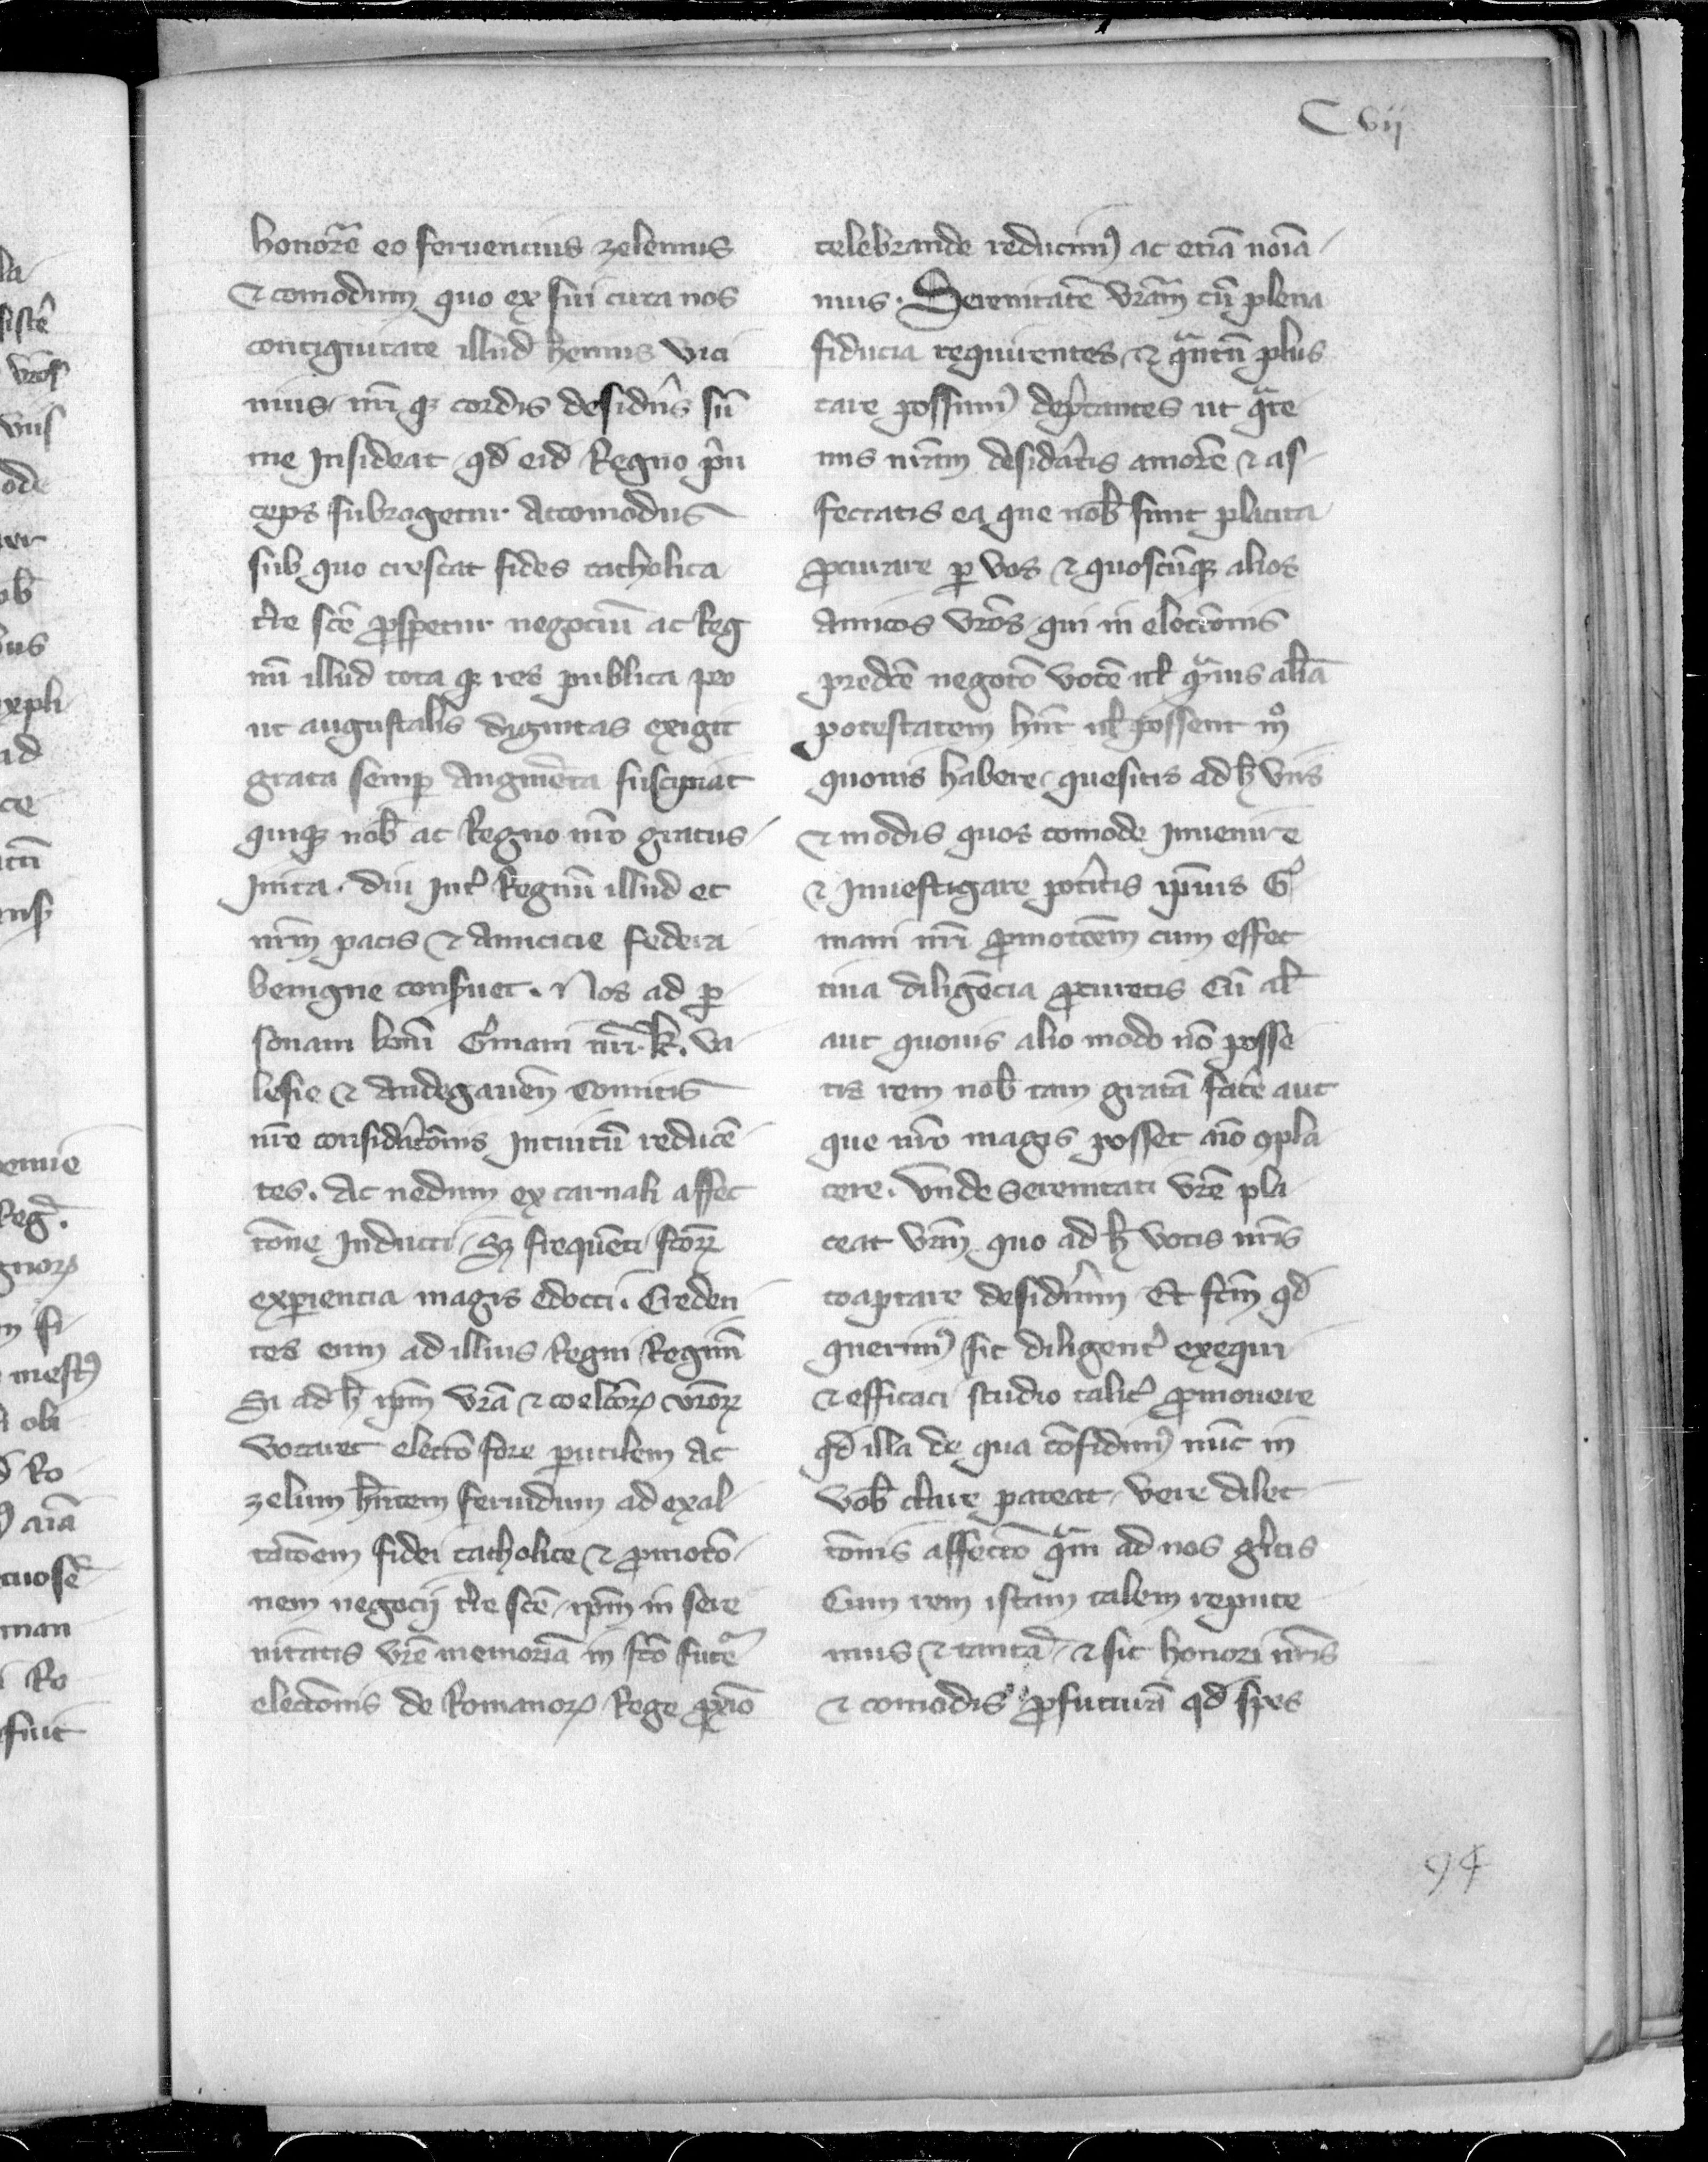 C vij
honorē eo feruencius zelemus
⁊ comodum quo ex sui cura nos
contiguitate illud hemus vici
nius nr̄i qꝫ cordis desid'iis sū
me Insideat qd eid Regno p̄n
ceps subrogetur Accomodus
sub quo crescat fides catholica
t're sc̄e ꝓsperur negociū ac Reg
nū illud tota qꝫ res publica pro
ut augustalis dignitas exigit
grata semꝑ Augmēta suscipiat
quiqꝫ nob̄ ac Regno nr̄o gratus
Inita diu Int' Regnū illud et
nr̄m pacis ⁊ Amicicie federa
benigne conseruet. Nos ad ꝑ
sonam kar̄mi G'mani nr̄i. k. Va
lesie ⁊ Andegauen̄ Comitis
nr̄e consid'atōnis Intuitū reducē
tes. Ac nedum ex carnali affec
tōne Inducti Sꝫ frequēti fc̄oꝝ
exꝑiencia magis edocti. Creden
tes eum ad illius Regni Regimē
Si ad h̄ ip̄m vr̄a ⁊ coelc̄oꝝ vr̄oꝝ
vocaret electō fore ꝑutilem Ac
zelum hn̄tem feruidum ad exal
tatōem fidei catholice ⁊ ꝓmotō
nem negocij t're sc̄e ip̄m in sere
nitatis vr̄e memoriā in fc̄o futᵉ
electōnis de Romanoꝝ Rege ꝓxīo
celebrande reducim⁹ ac etiā noīa
mus. Serenitatē vr̄am cū plena
fiducia requirentes ⁊ qᵃntū plus
care possum⁹ dep̄cantes ut qᵃte
nus nr̄am desid'atis amorē ⁊ af
fectatis ea que nob̄ sunt placita
ꝓcurare ꝑ vos ⁊ quoscūqꝫ alios
Amicos vr̄os qui in electōnis
predc̄e negotō vocē ul' qᵃmuis aliā
potestatem hn̄t ul' possent mº
quouis habere quesitis ad h̄ viis
⁊ modis quos comode Inuenire
⁊ Inuestigare pot'itis ip̄ius G'
mani nr̄i ꝓmotōem cum effec
tiua diligēcia ꝓcuretis Cū al'
aut quouis alio modo nō posse
tis rem nob̄ tam gratā fac'e aut
que nr̄o magis posset aīo ꝯpla
cere. Vnde Serenitati vr̄e pla
ceat vr̄m quo ad h̄ votis nr̄is
coaptare desid'ium Et fc̄m qd
querim⁹ sic diligent' exequi
⁊ efficaci studio talit' ꝓmouere
qd illa de qua cōfidim⁹ nūc in
vob̄ clare pateat vere dilec
tōnis affectō qᵃm ad nos g'itis
Cum rem istam talem repute
mus ⁊ tantā ⁊ sic honori nr̄is
⁊ comodis ꝓfuturā qd spes
94